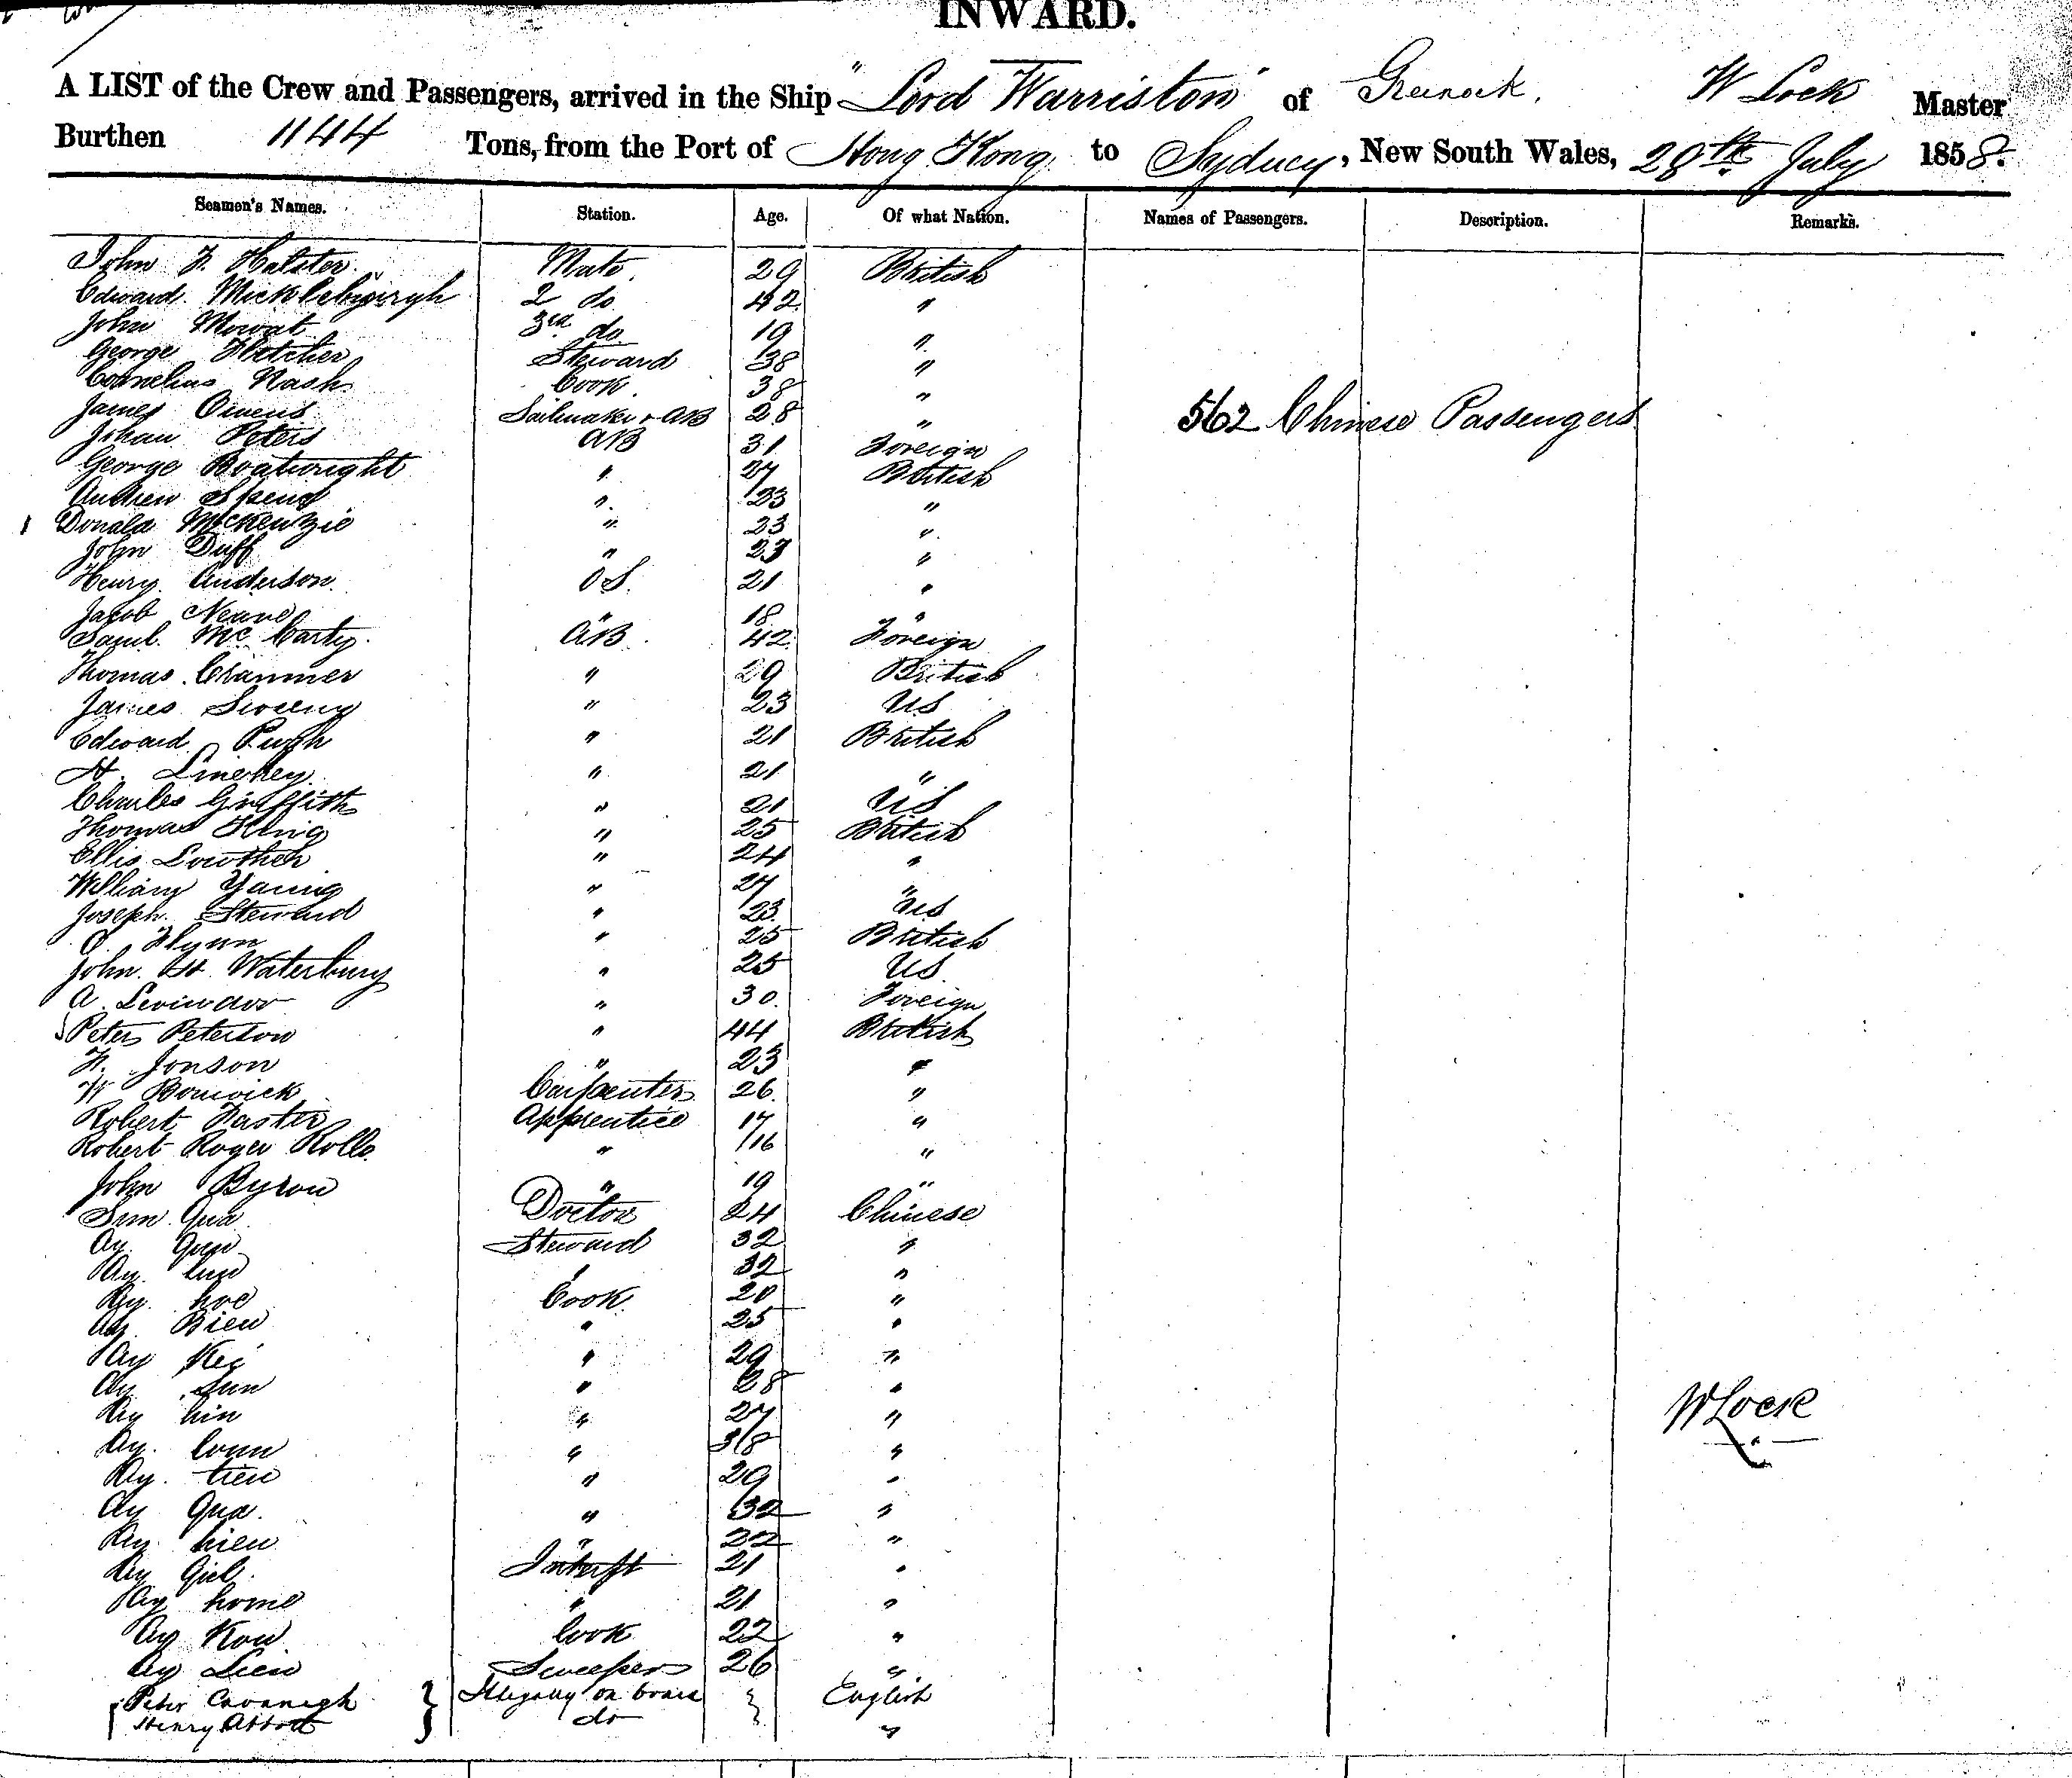 INWARD.
A LIST of the Crew and Passengers, arrived in the Ship "Lord Warriston" of Greenock, W Lock Master
Burthen 1144 Tons, from the Port of Hong Kong to Sydney, New South Wales, 28th July 1858.
Seamen's Names. Station. Age. Of what Nation. Names of Passengers. Description. Remarks.
John F. Hatster Mate 29 British
Edward Mickleburgh 2 do 42 "
John Mowat 3rd do 19 "
George Fletcher Steward 38 "
Cornelius Nash Cook 38 "
James Owens Sailmaker & AB 28 " 562 Chinese Passengers
Johan Peters AB 31 Foreign
George Boatwright " 27 British
Andrew Spend " 23 "
Donald McKenzie " 23 "
John Duff " 23 "
Henry Anderson OS. 21 "
Jacob " 18 "
Saml. McCarty AB 42 Foreign
Thomas Crammer " 29 British
James Sweeny " 23 US
Edward Pugh " 21 British
H. Linehey " 21 "
Charles Griffith " 21 US
Thomas King " 25 British
Ellis Lowther " 24 "
William Young " 27 "
Joseph Steward " 23 US
O. Flynn " 25 British
John H. Waterbury " 25 US
A. " 30 Foreign
Peter Peterson " 44 British
F. Jonson " 23 "
W Borwick Carpenter 26 "
Robert Faster Apprentice 17 "
Robert Roger Rollo " 16 "
John Byron " 19 "
Sum Qua Doctor 24 Chinese
Ay Steward 32 "
Ay " 32 "
Ay hoe Cook 20 "
Ay Bien " 25 "
Ay Kei " 29 "
Ay Sun " 28 "
Ay hin " 27 "
W Lock
Ay " 38 "
Ay tien " 29 "
Ay Qua " 32 "
Ay hien " 22 "
Ay 21 "
Ay home " 21 "
Ay Kow Cook 22 "
Ay Lien Sweeper 26 "
Peter Cavanagh } Illegally on board } English
Henry Abbott do "